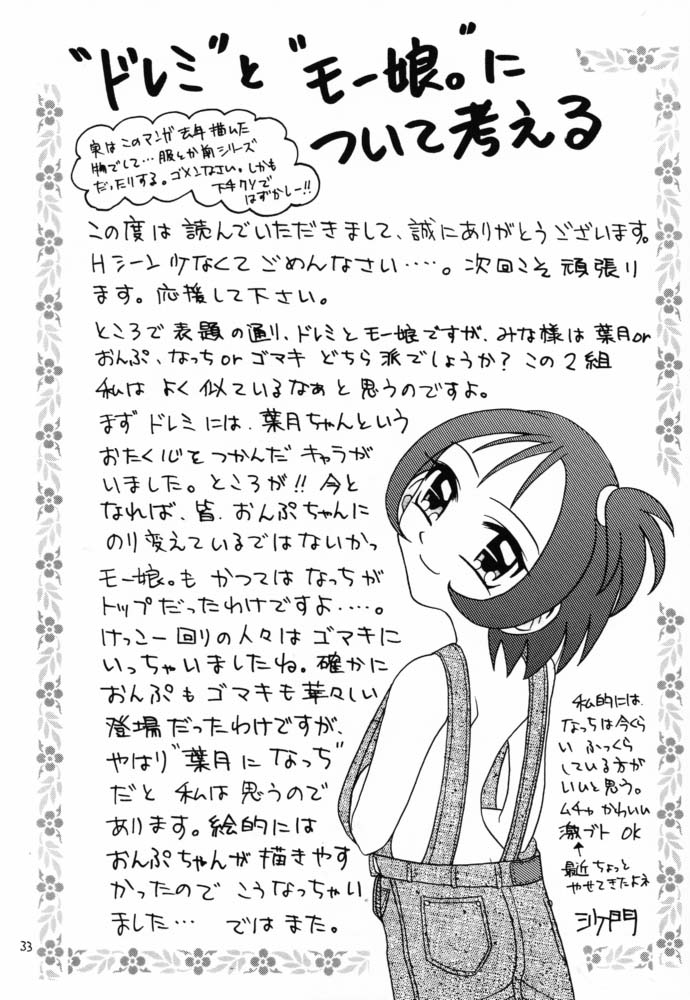 "ドレミ"と"モー娘。"に
ついて考える
実はこのマンガ去年描いた
物でして…服とか前シリーズ
だったりする。ゴメンなさい。しかも
下手クソで
はずかしー!!
この度は読んでいただきまして、誠にありがとうございます。
Hシーン少なくてごめんなさい‥‥。次回こそ頑張り
ます。応援して下さい。
ところで表題の通り、ドレミとモー娘ですが、みな様は葉月or
おんぷ、なっちorゴマキ どちら派でしょうか?この2組
私はよく似ているなぁと思うのですよ。
まずドレミには、葉月ちゃんという
おたく心をつかんだキャラが
いました。ところが!!今と
なれば、皆、おんぷちゃんに
のり変えているではないかっ
モー娘。もかつてはなっちが
トップだったわけですよ‥‥。
けっこー回りの人々はゴマキに
いっちゃいましたね。確かに
おんぷもゴマキも華々しい
登場だったわけですが、
やはり"葉月になっち"
だと私は思うので
あります。絵的には
おんぷちゃんが描きやす
かったのでこうなっちゃい
ました… ではまた。
私的には、
なっちは今くら
いふっくら
している方が
いいと思う。
ムチャかわいい
激ブトOK
↑
最近ちょっと
やせてきたよネ
沙門
33